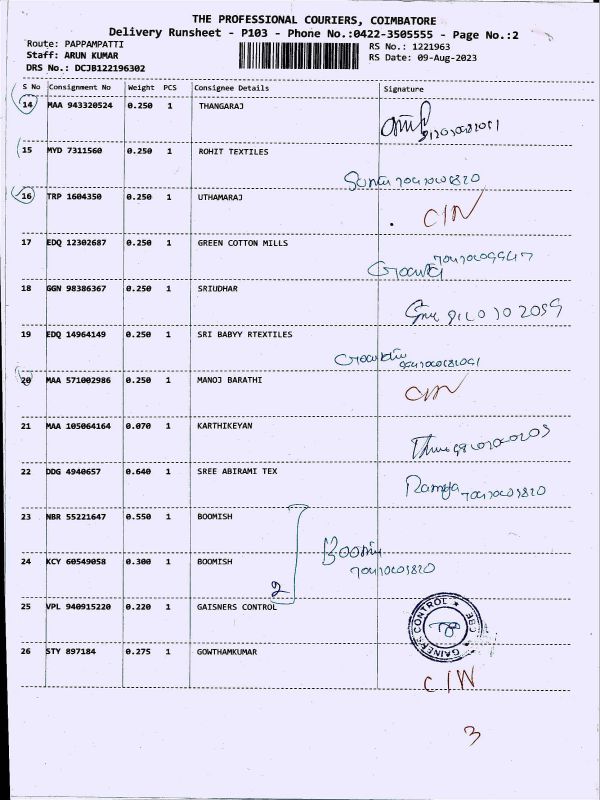 THE PROFESSIONAL COURIERS, COIMBATORE
Delivery Runsheet - P103 - Phone No.:0422-3505555 - Page No.:2
Route: PAPPAMPATTI RS No.: 1221963
Staff: ARUN KUMAR RS Date: 09-Aug-2023
DRS No.: DCJB122196302
S No Consignment No Weight PCS Consignee Details Signature
14 MAA 943320524 0.250 1 THANGARAJ
15 MYD 7311560 0.250 1 ROHIT TEXTILES
16 TRP 1604350 0.250 1 UTHAMARAJ
C/N
17 EDQ 12302687 0.250 1 GREEN COTTON MILLS
18 GGN 98386367 0.250 1 SRIUDHAR
19 EDQ 14964149 0.250 1 SRI BABYY RTEXTILES
20 MAA 571002986 0.250 1 MANOJ BARATHI
C/N
21 MAA 105064164 0.070 1 KARTHIKEYAN
22 DDG 4940657 0.640 1 SREE ABIRAMI TEX
Ramya
23 NBR 55221647 0.550 1 BOOMISH
24 KCY 60549058 0.300 1 BOOMISH
2
25 VPL 940915220 0.220 1 GAISNERS CONTROL
GAINERS CONTROL ★ CBE ★
26 STY 897184 0.275 1 GOWTHAMKUMAR
C/N
3